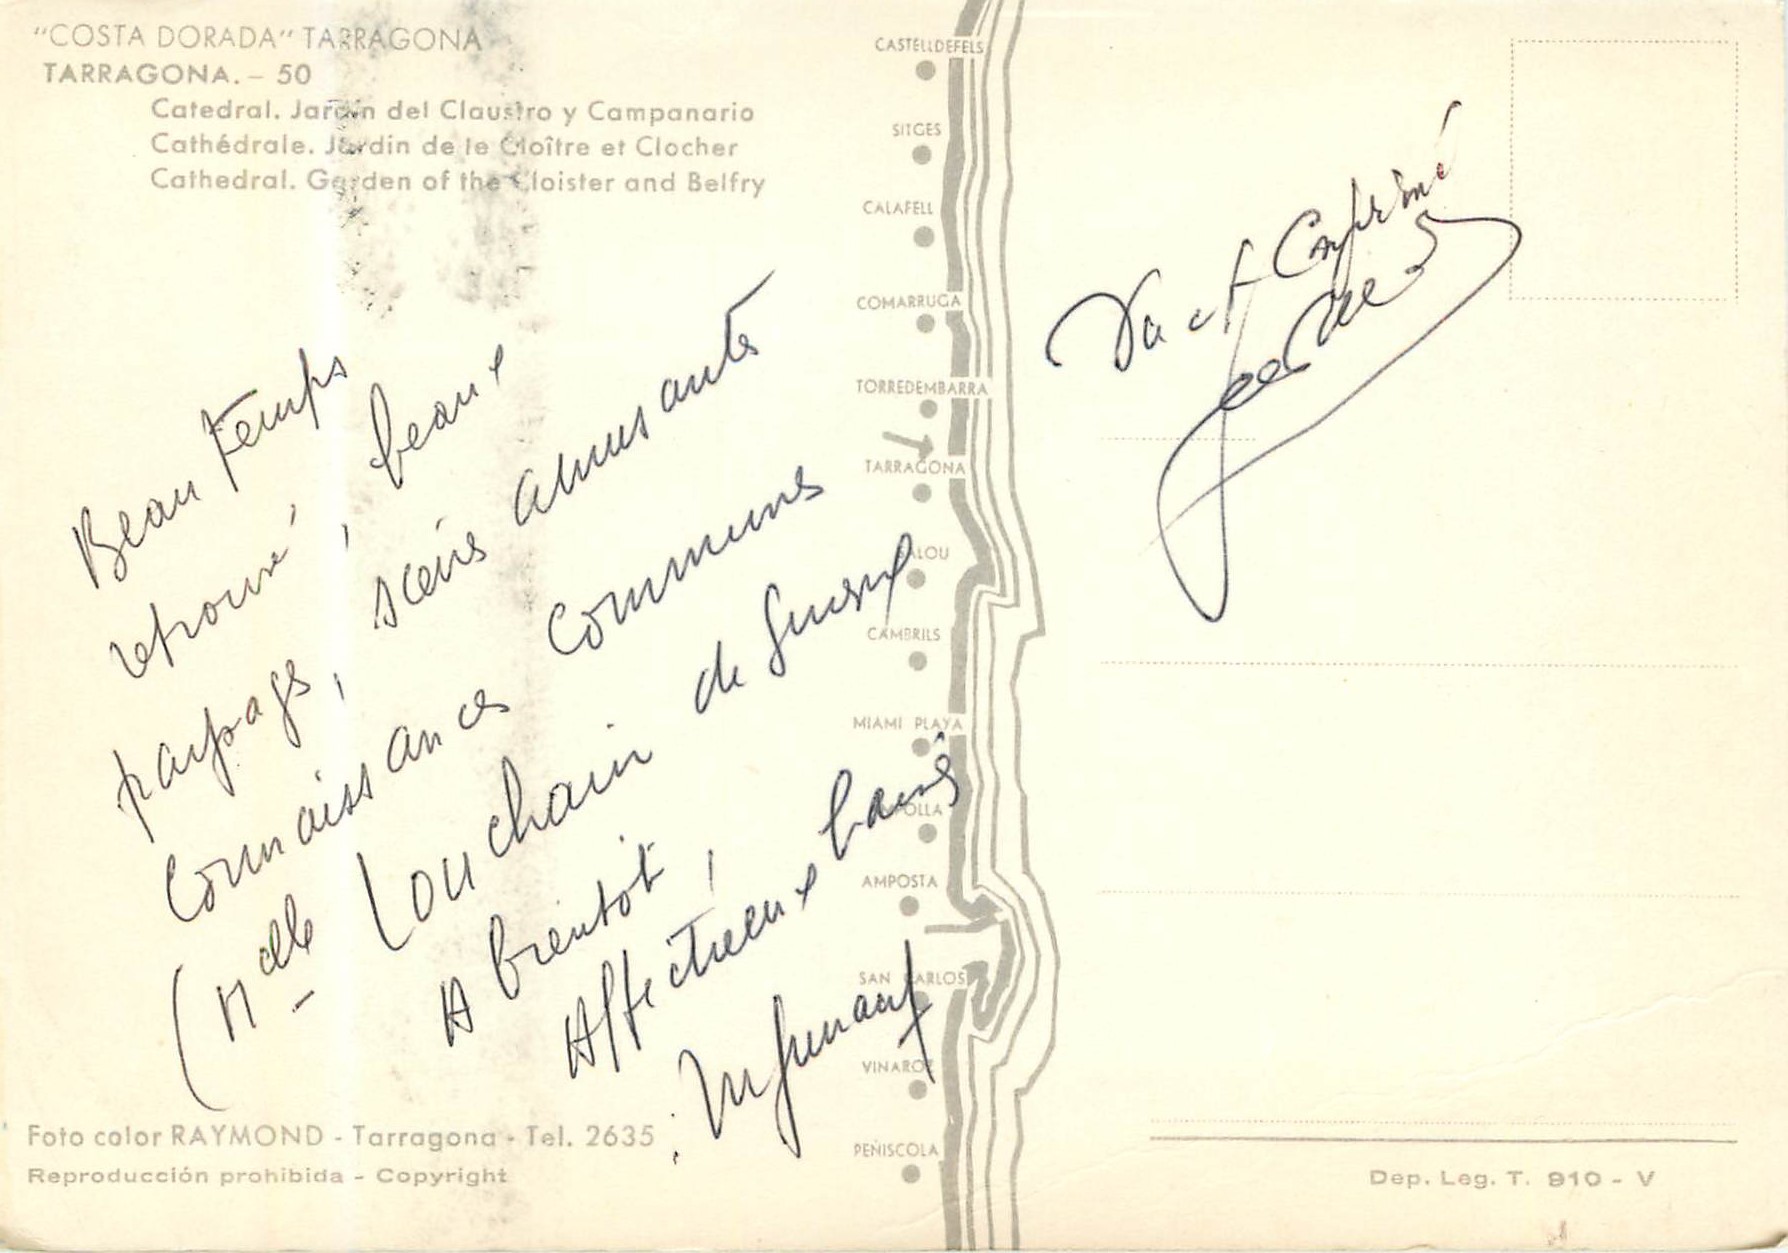 "COSTA DORADA" TARRAGONA
TARRAGONA. - 50
Catedral. Jardín del Claustro y Campanario
Cathédrale. Jardin de le Cloître et Clocher
Cathedral. Garden of the Cloister and Belfry
Beau temps
retrouvé, beaux
paysages, soirées amusantes
connaissances communes
(Melle Louchain de
A bientôt,
Affectueux baisers
Vu et
CASTELLDEFELS
SITGES
CALAFELL
COMARRUGA
TORREDEMBARRA
TARRAGONA
SALOU
CAMBRILS
MIAMI PLAYA
AMPOLLA
AMPOSTA
SAN CARLOS
VINAROZ
PEÑISCOLA
Foto color RAYMOND - Tarragona - Tel. 2635
Reproducción prohibida - Copyright
Dep. Leg. T. 910 - V